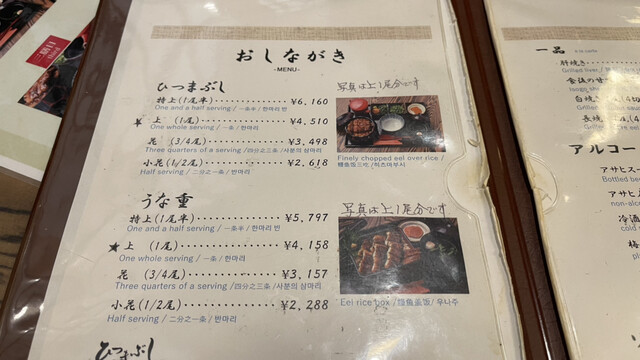 おしながき
-MENU-
ひつまぶし
特上(1尾半)............¥6,160
One and a half serving / 一条半/한마리 반
★ 上 (1尾)............¥4,510
One whole serving / 一条 / 한마리
花 (3/4尾)............¥3,498
Three quarters of a serving /四分之三条 /사분의 삼마리
小花(1/2尾)............¥2,618
Half serving / 二分之一条 / 반마리
写真は上1尾分です
Finely chopped eel over rice /
鰻魚飯三吃 /히츠마부시
うな重
特上(1尾半)............¥5,797
One and a half serving / 一条半/한마리 반
★ 上 (1尾)............¥4,158
One whole serving / 一条 /한마리
花 (3/4尾)............¥3,157
Three quarters of a serving /四分之三条 /사분의 삼마리
小花(1/2尾)............¥2,288
Half serving / 二分之一条 / 반마리
写真は上1尾分です
Eel rice box /鰻魚盖饭/ 우나주
ひつまぶし
一品
肝焼き
Grilled liver /
白焼き
Grilled
長焼
Grilled
アルコー
アサヒス
Bottled bee
アサヒ
non-alco
冷酒
cold s